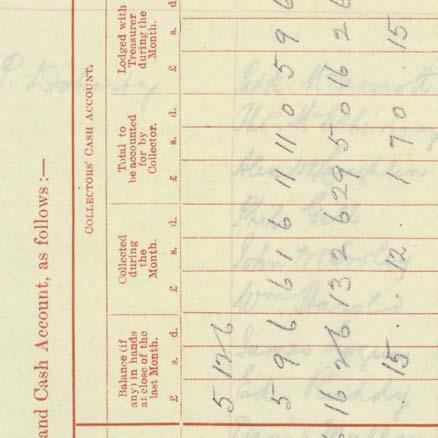 and Cash Account, as follows :—
COLLECTORS' CASH ACCOUNT.
Balance (if
any) in hands
at close of the
last Month.
Collected
during
the
Month.
Total to
be accounted
for by
Collector.
Lodged with
Treasurer
during the
Month.
£ s. d. £ s. d. £ s. d. £ s. d.
5 12 6
5 9 6 6 1 6 11 11 0 5 9 6
16 2 6 13 2 6 29 5 0 16 2 6
. 15 . . 12 . 1 7 0 . 15